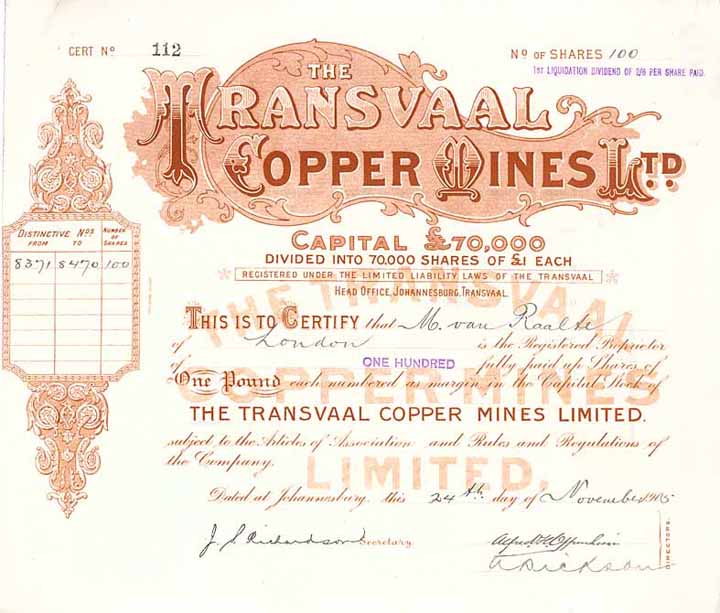 CERT Nº 112
Nº OF SHARES 100
1ST LIQUIDATION DIVIDEND OF 2/6 PER SHARE PAID.
THE
TRANSVAAL
COPPER MINES LTD
CAPITAL £70,000
DIVIDED INTO 70,000 SHARES OF £1 EACH
REGISTERED UNDER THE LIMITED LIABILITY LAWS OF THE TRANSVAAL
HEAD OFFICE, JOHANNESBURG, TRANSVAAL.
DISTINCTIVE Nos NUMBER OF SHARES
FROM TO
8371 8470 100
THE TRANSVAAL
COPPER MINES
LIMITED.
THIS IS TO CERTIFY that M. van Raalte
of London is the Registered Proprietor
of ONE HUNDRED fully paid up Shares of
One Pound each numbered as margin in the Capital Stock of
THE TRANSVAAL COPPER MINES LIMITED.
subject to the Articles of Association and Rules and Regulations of
the Company.
Dated at Johannesburg, this 24th day of November 1905
J. S. Richardson Secretary.
Oppenheim
A Dickson
DIRECTORS.